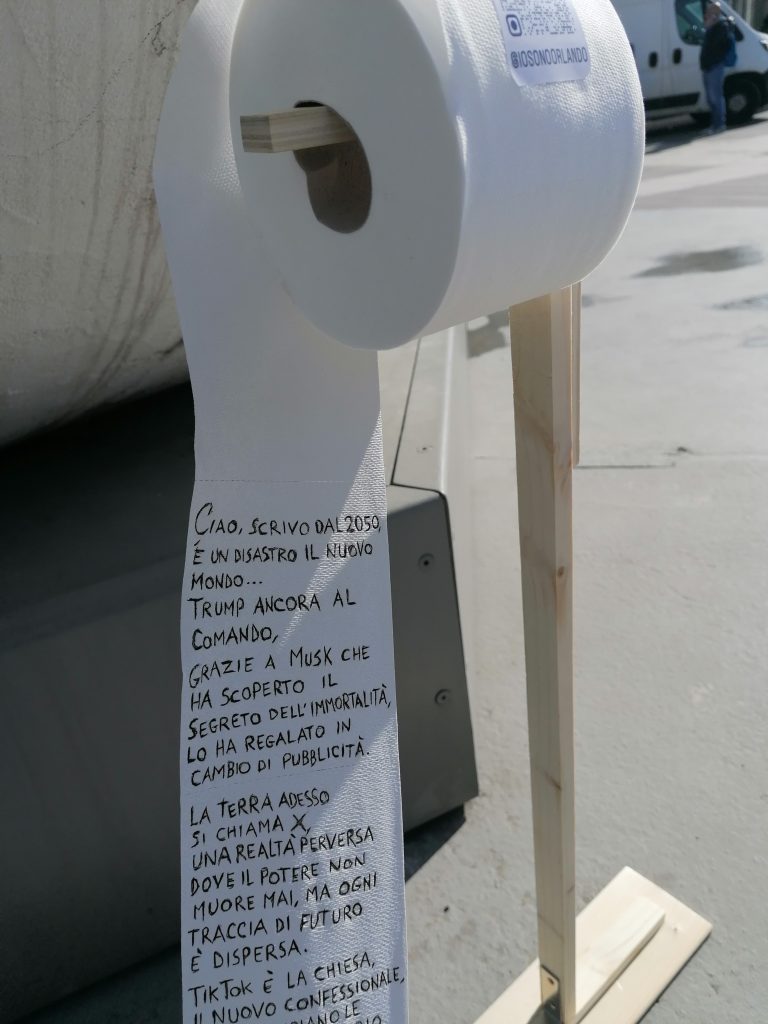 @IOSONOORLANDO
CIAO, SCRIVO DAL 2050,
È UN DISASTRO IL NUOVO
MONDO...
TRUMP ANCORA AL
COMANDO,
GRAZIE A MUSK CHE
HA SCOPERTO IL
SEGRETO DELL'IMMORTALITÀ,
LO HA REGALATO IN
CAMBIO DI PUBBLICITÀ.
LA TERRA ADESSO
SI CHIAMA X,
UNA REALTÀ PERVERSA
DOVE IL POTERE NON
MUORE MAI, MA OGNI
TRACCIA DI FUTURO
È DISPERSA.
TIKTOK È LA CHIESA,
IL NUOVO CONFESSIONALE,
LE